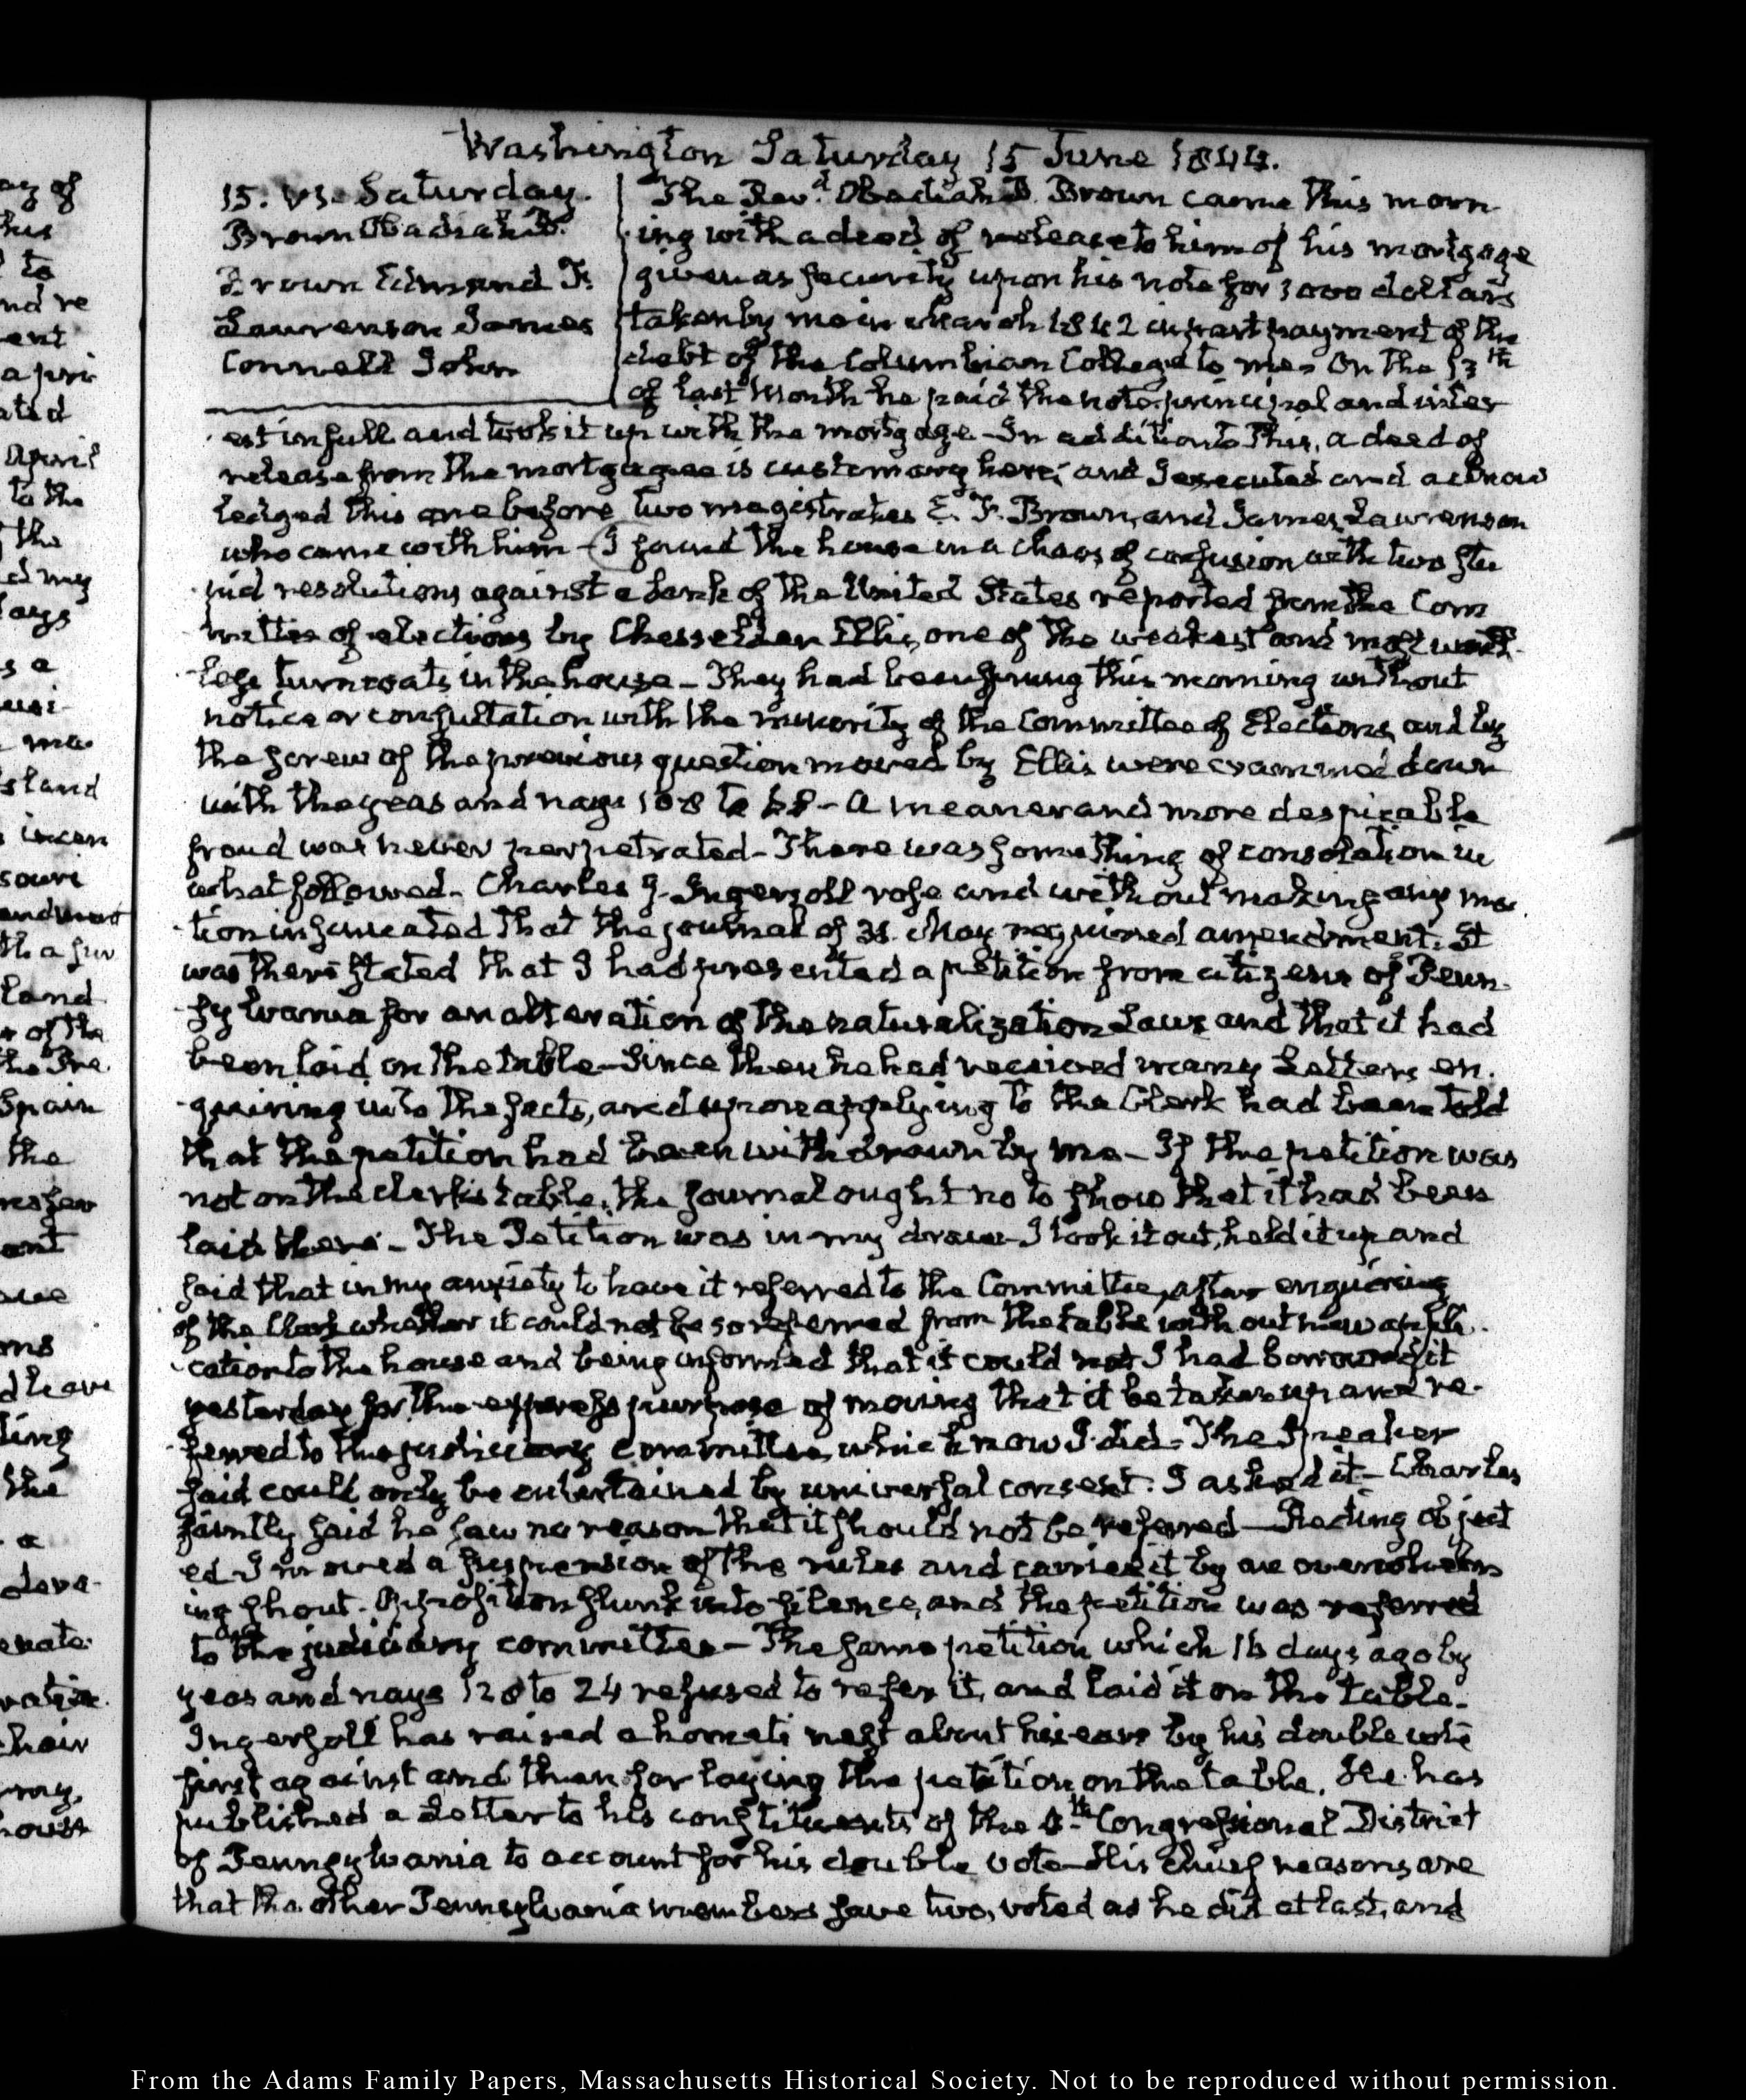 Washington Saturday 15 June 1844.
15. VI. Saturday.
Brown Obadiah B.
Brown Edmund F.
Lawrenson James
Connell John
The Revd. Obadiah B. Brown came this morn
ing with a deed of release to him of his mortgage
given as security upon his note for 3000 dollars
taken by me in March 1842 in part payment of the
debt of the Columbian College to me. On the 13th
of last Month he paid the note, principal and inter
est in full and took it up with the mortgage - In addition to this, a deed of
release from the mortgagee is customary here; and I executed and acknow
ledged this one before two magistrates E. F. Brown, and James Lawrenson
who came with him - I found the house in a chaos of confusion with two stu
pid resolutions against a bank of the United States reported from the Com
mittee of elections by Chesselden Ellis, one of the weakest and most worth
less turncoats in the house - They had been sprung this morning without
notice or consultation with the minority of the Committee of Elections, and by
the screw of the previous question moved by Ellis were crammed down
with the yeas and nays 108 to - A meaner and more despicable
fraud was never perpetrated - There was something of consolation in
what followed - Charles J. Ingersoll rose and without making any mo
tion insinuated that the journal of 31. May required amendment. It
was there stated that I had presented a petition from citizens of Penn
sylvania for an alteration of the naturalization Laws and that it had
been laid on the table - Since then he had received many Letters en
quiring into the facts, and upon applying to the Clerk had been told
that the petition had been withdrawn by me - If the petition was
not on the clerk's table, the journal ought no to show that it had been
laid there - The Petition was in my drawer I took it out, held it up and
said that in my anxiety to have it referred to the Committee, after enquiring
of the Clerk whether it could not be so referred from the table without new appli
cation to the house and being informed that it could not I had borrowed it
yesterday for the express purpose of moving that it be taken up and re
ferred to the judiciary committee, which now I did - The Speaker
said could only be entertained by universal consent. I asked it - Charles
faintly said he saw no reason that it should not be referred - Reding object
ed I moved a suspension of the rules and carried it by an overwhelm
ing shout. Opposition slunk into silence, and the petition was referred
to the judiciary committee - The same petition which 16 days ago by
yeas and nays 128 to 24 refused to refer it, and laid it on the table -
Ingersoll has raised a hornets nest about his ears by his double vote
first against and then for laying the petition on the table. He has
published a Letter to his constituents of the 4th Congressional District
of Pennsylvania to account for his double vote - His chief reasons are
that the other Pennsylvania members save two, voted as he did at last, and
From the Adams Family Papers, Massachusetts Historical Society. Not to be reproduced without permission.